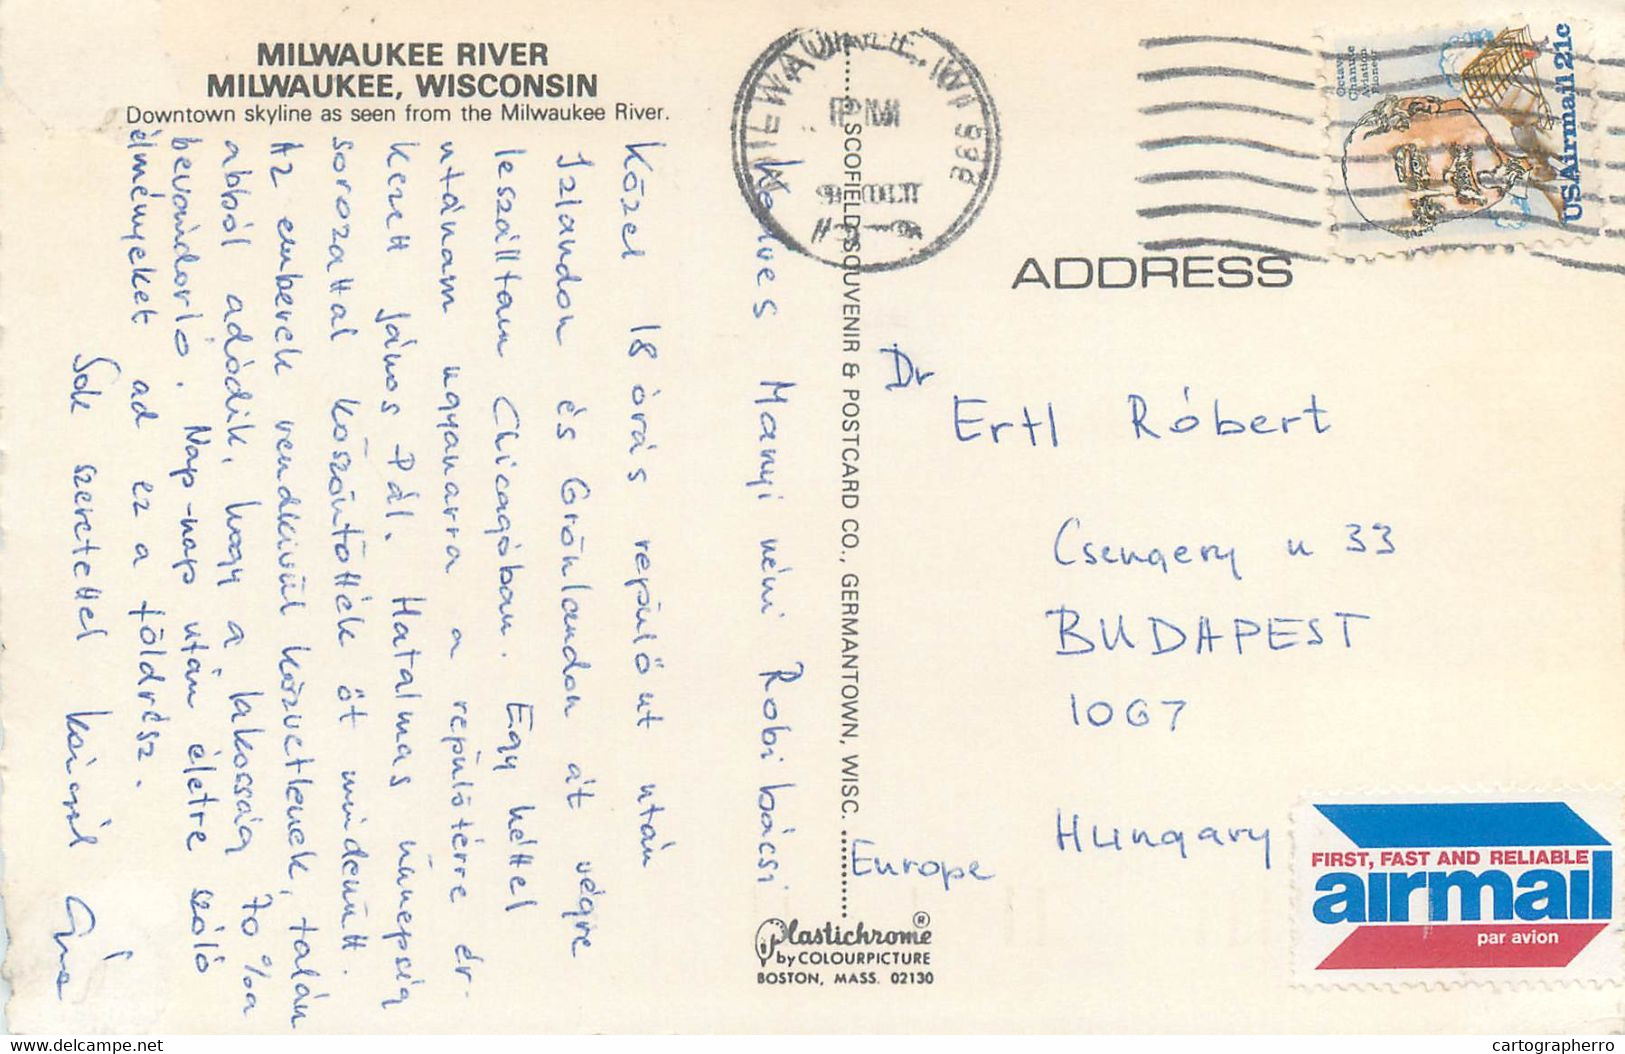 MILWAUKEE RIVER
MILWAUKEE, WISCONSIN
Downtown skyline as seen from the Milwaukee River.
Kedves Manyi néni Robi bácsi
Közel 18 órás repülőút után
Izlandon és Grönlandon át végre
leszálltam Chicagóban. Egy héttel
utánam ugyanarra a repülőtérre ér-
kezett János Pál. Hatalmas ünnepség
sorozattal köszöntötték őt mindenütt.
Az emberek rendkívül közvetlenek, talán
abból adódik, hogy a lakosság 70 %a
bevándorló. Nap-nap után életre szóló
élményeket ad ez a földrész.
Sok szeretettel
SCOFIELD SOUVENIR & POSTCARD CO., GERMANTOWN, WISC.
Plastichrome ®
by COLOURPICTURE
BOSTON, MASS. 02130
MILWAUKEE, WI 532
PM
Octave
Chanute
Aviation
Pioneer
USAirmail 21c
ADDRESS
Dr
Ertl Róbert
Csengery u 33
BUDAPEST
1067
Hungary
Europe
FIRST, FAST AND RELIABLE
airmail
par avion
delcampe.net
cartographerro